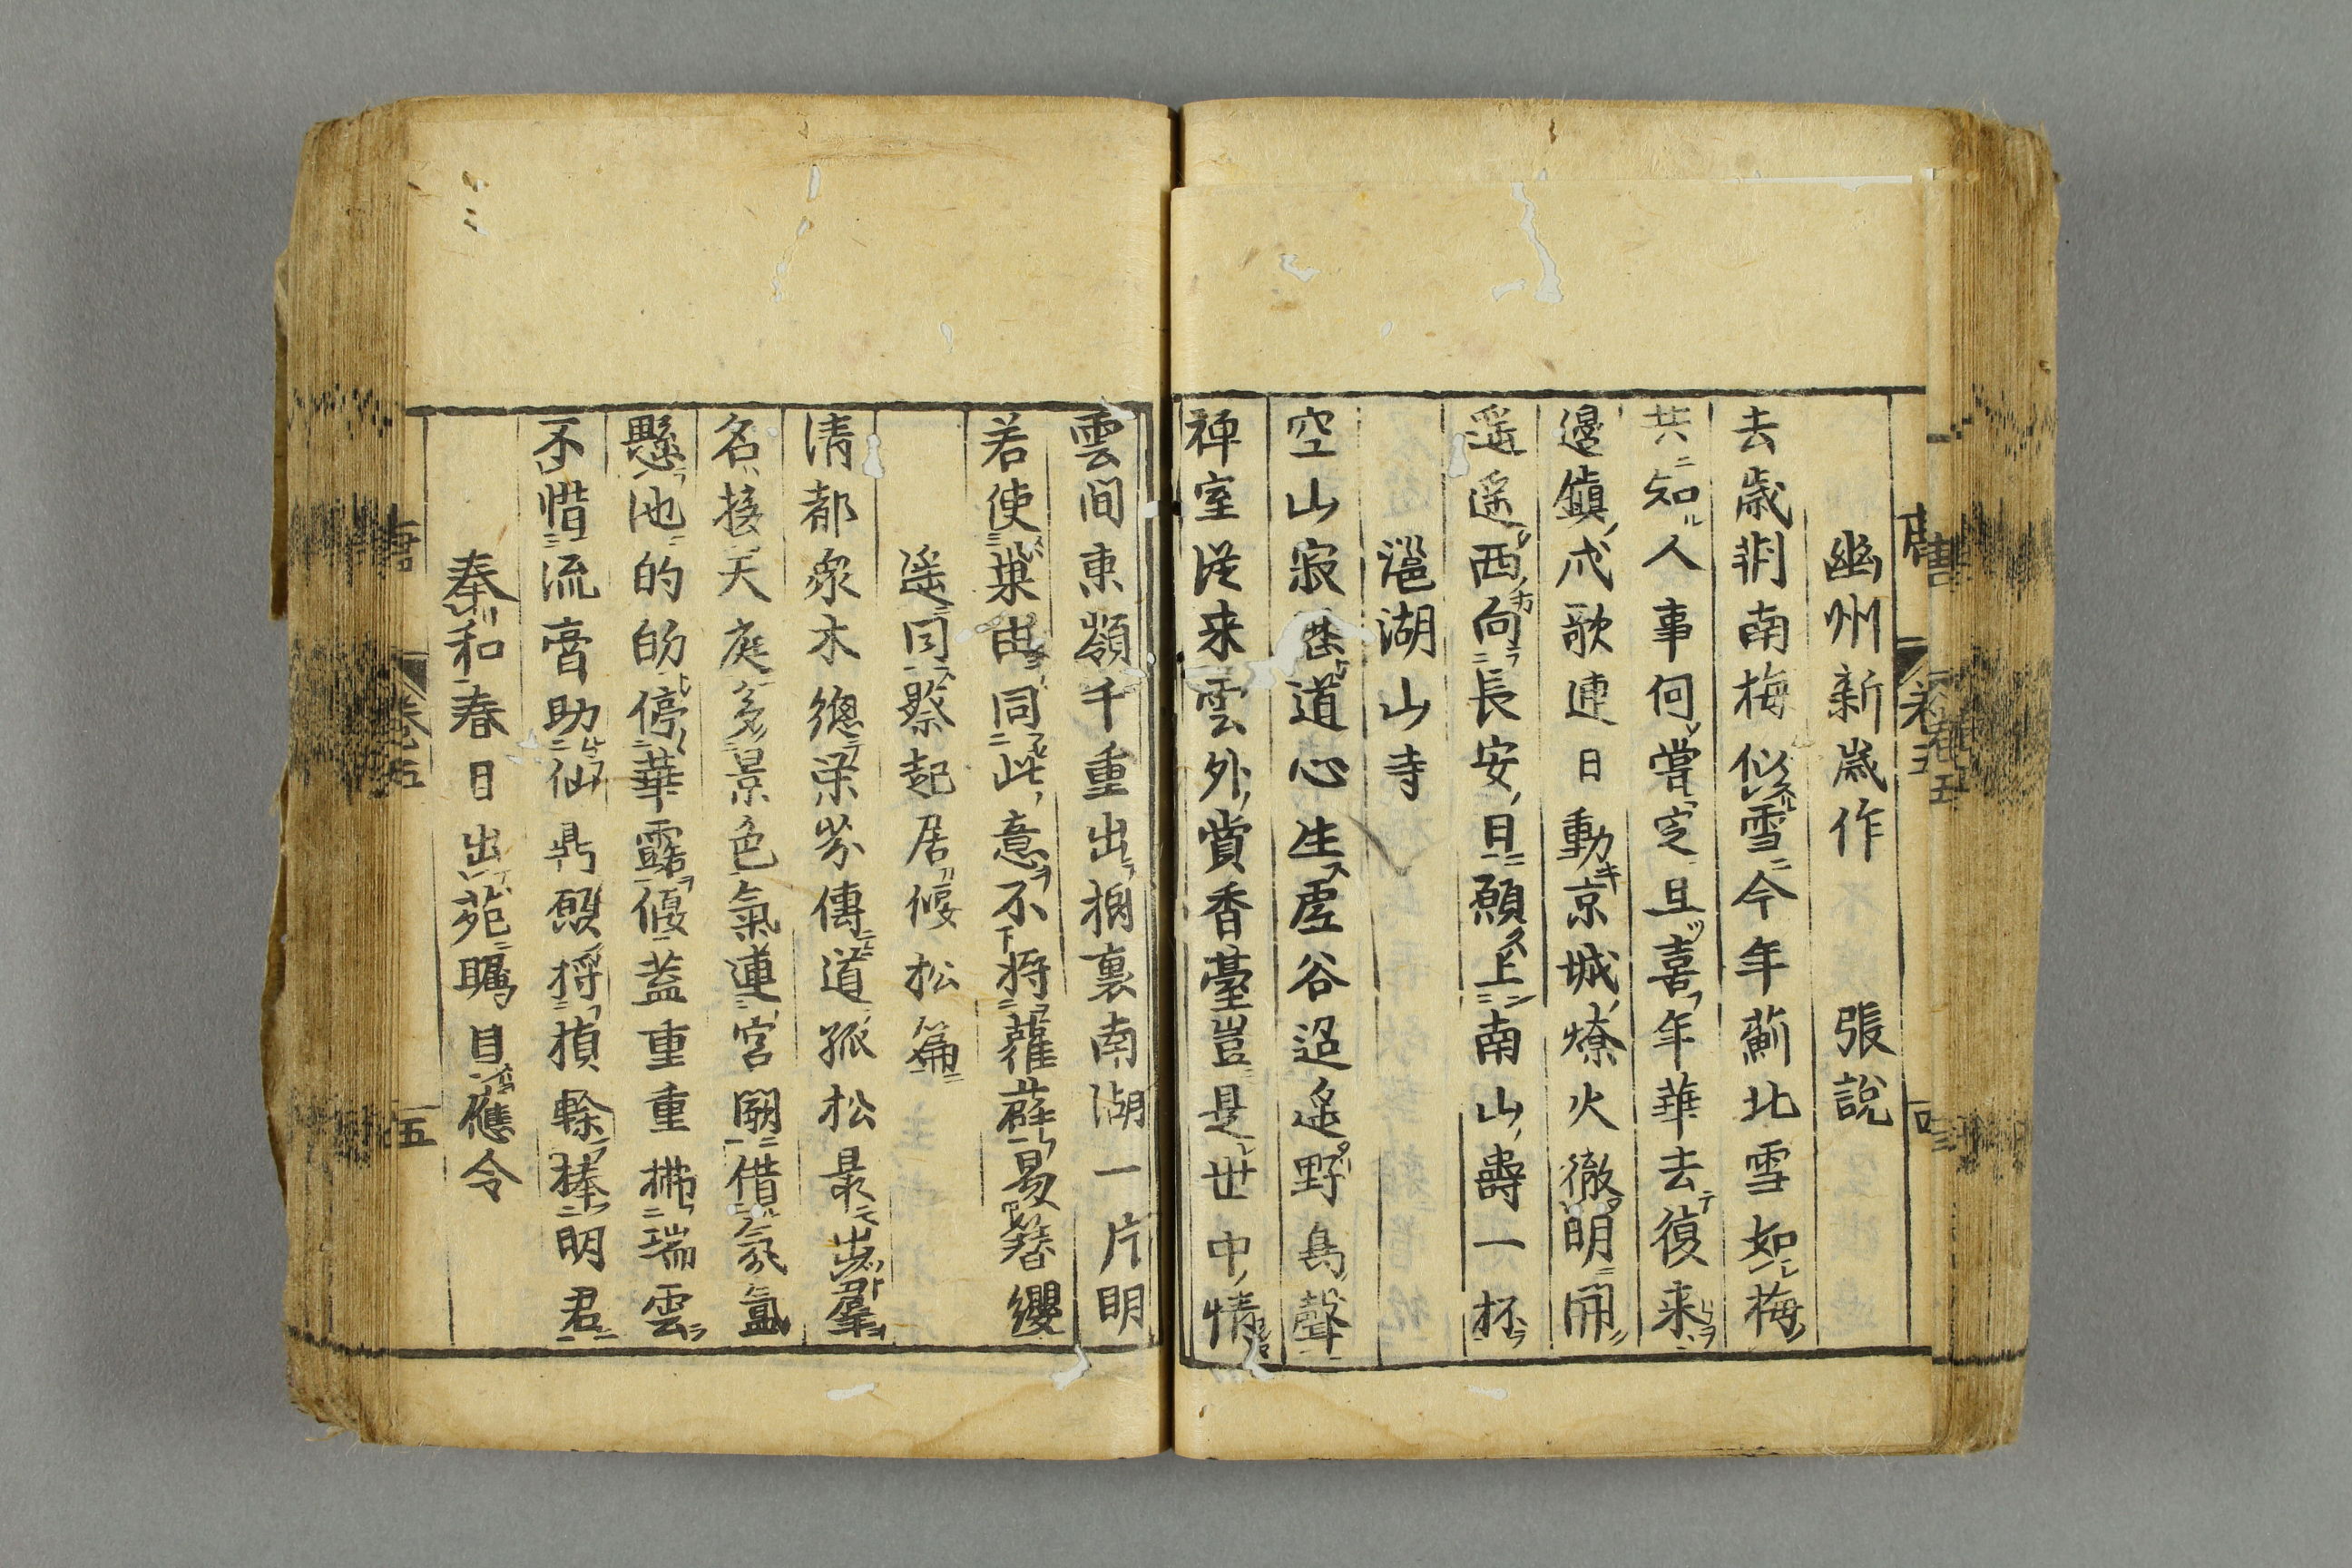 幽州新歳作　張說
去歳荆南梅似雪今年薊北雪如梅
共知人事何嘗定且喜年華去復来
邉鎮戍歌連日動京城燎火徹明開
遥遥西向長安日願上南山壽一杯
㴩湖山寺
空山寂歷道心生虚谷迢遥野鳥聲
禅室従来雲外賞香臺豈是世中情
雲間東嶺千重出樹裏南湖一片明
若使巢由同此意不将蘿薜易簪纓
遥同蔡起居偃松篇
清都衆木總榮芬傳道孤松最出羣
名接天庭多景色氣連宮闕借氛氲
懸池的的停華露偃蓋重重拂瑞雲
不惜流膏助仙鼎願将楨幹捧明君
奉和春日出苑矚目應令
唐　卷五　四
唐　卷五　五